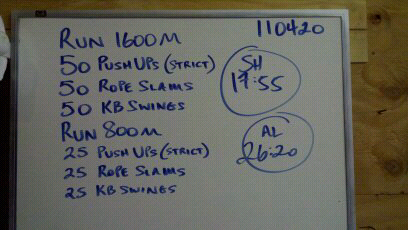 110420
RUN 1600M
50 PUSH UPS (STRICT)
50 ROPE SLAMS
50 KB SWINGS
RUN 800M
25 PUSH UPS (STRICT)
25 ROPE SLAMS
25 KB SWINGS
SH
17:55
AL
26:20